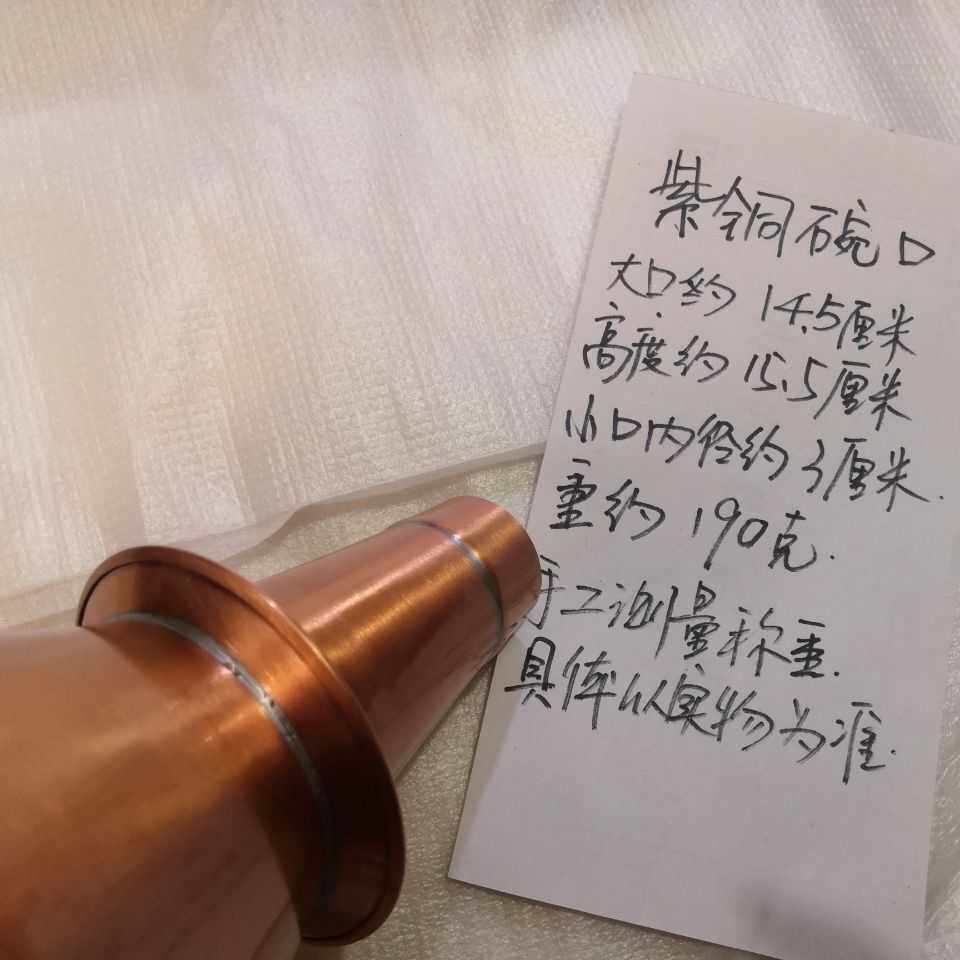 紫铜碗口
大口约 14.5厘米
高度约 15.5厘米
小口内径约 3厘米.
重约 190克.
手工测量称重.
具体以实物为准.